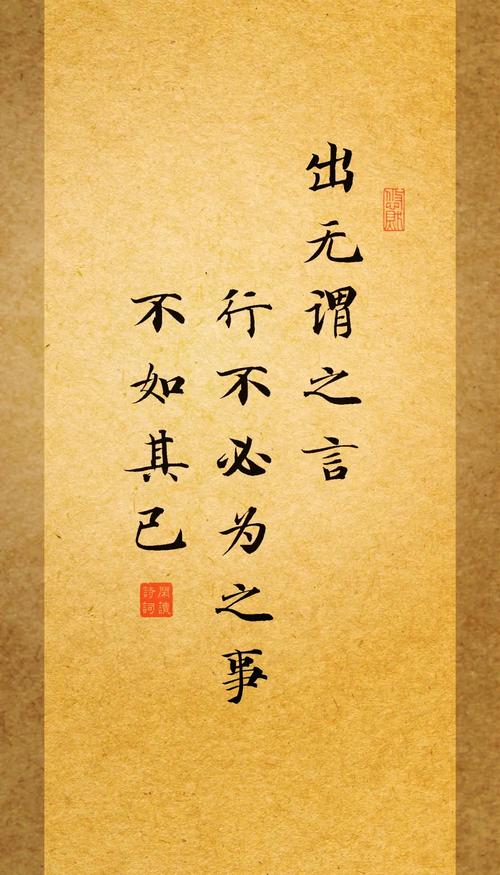 出无谓之言
行不必为之事
不如其已
閑讀
詩詞